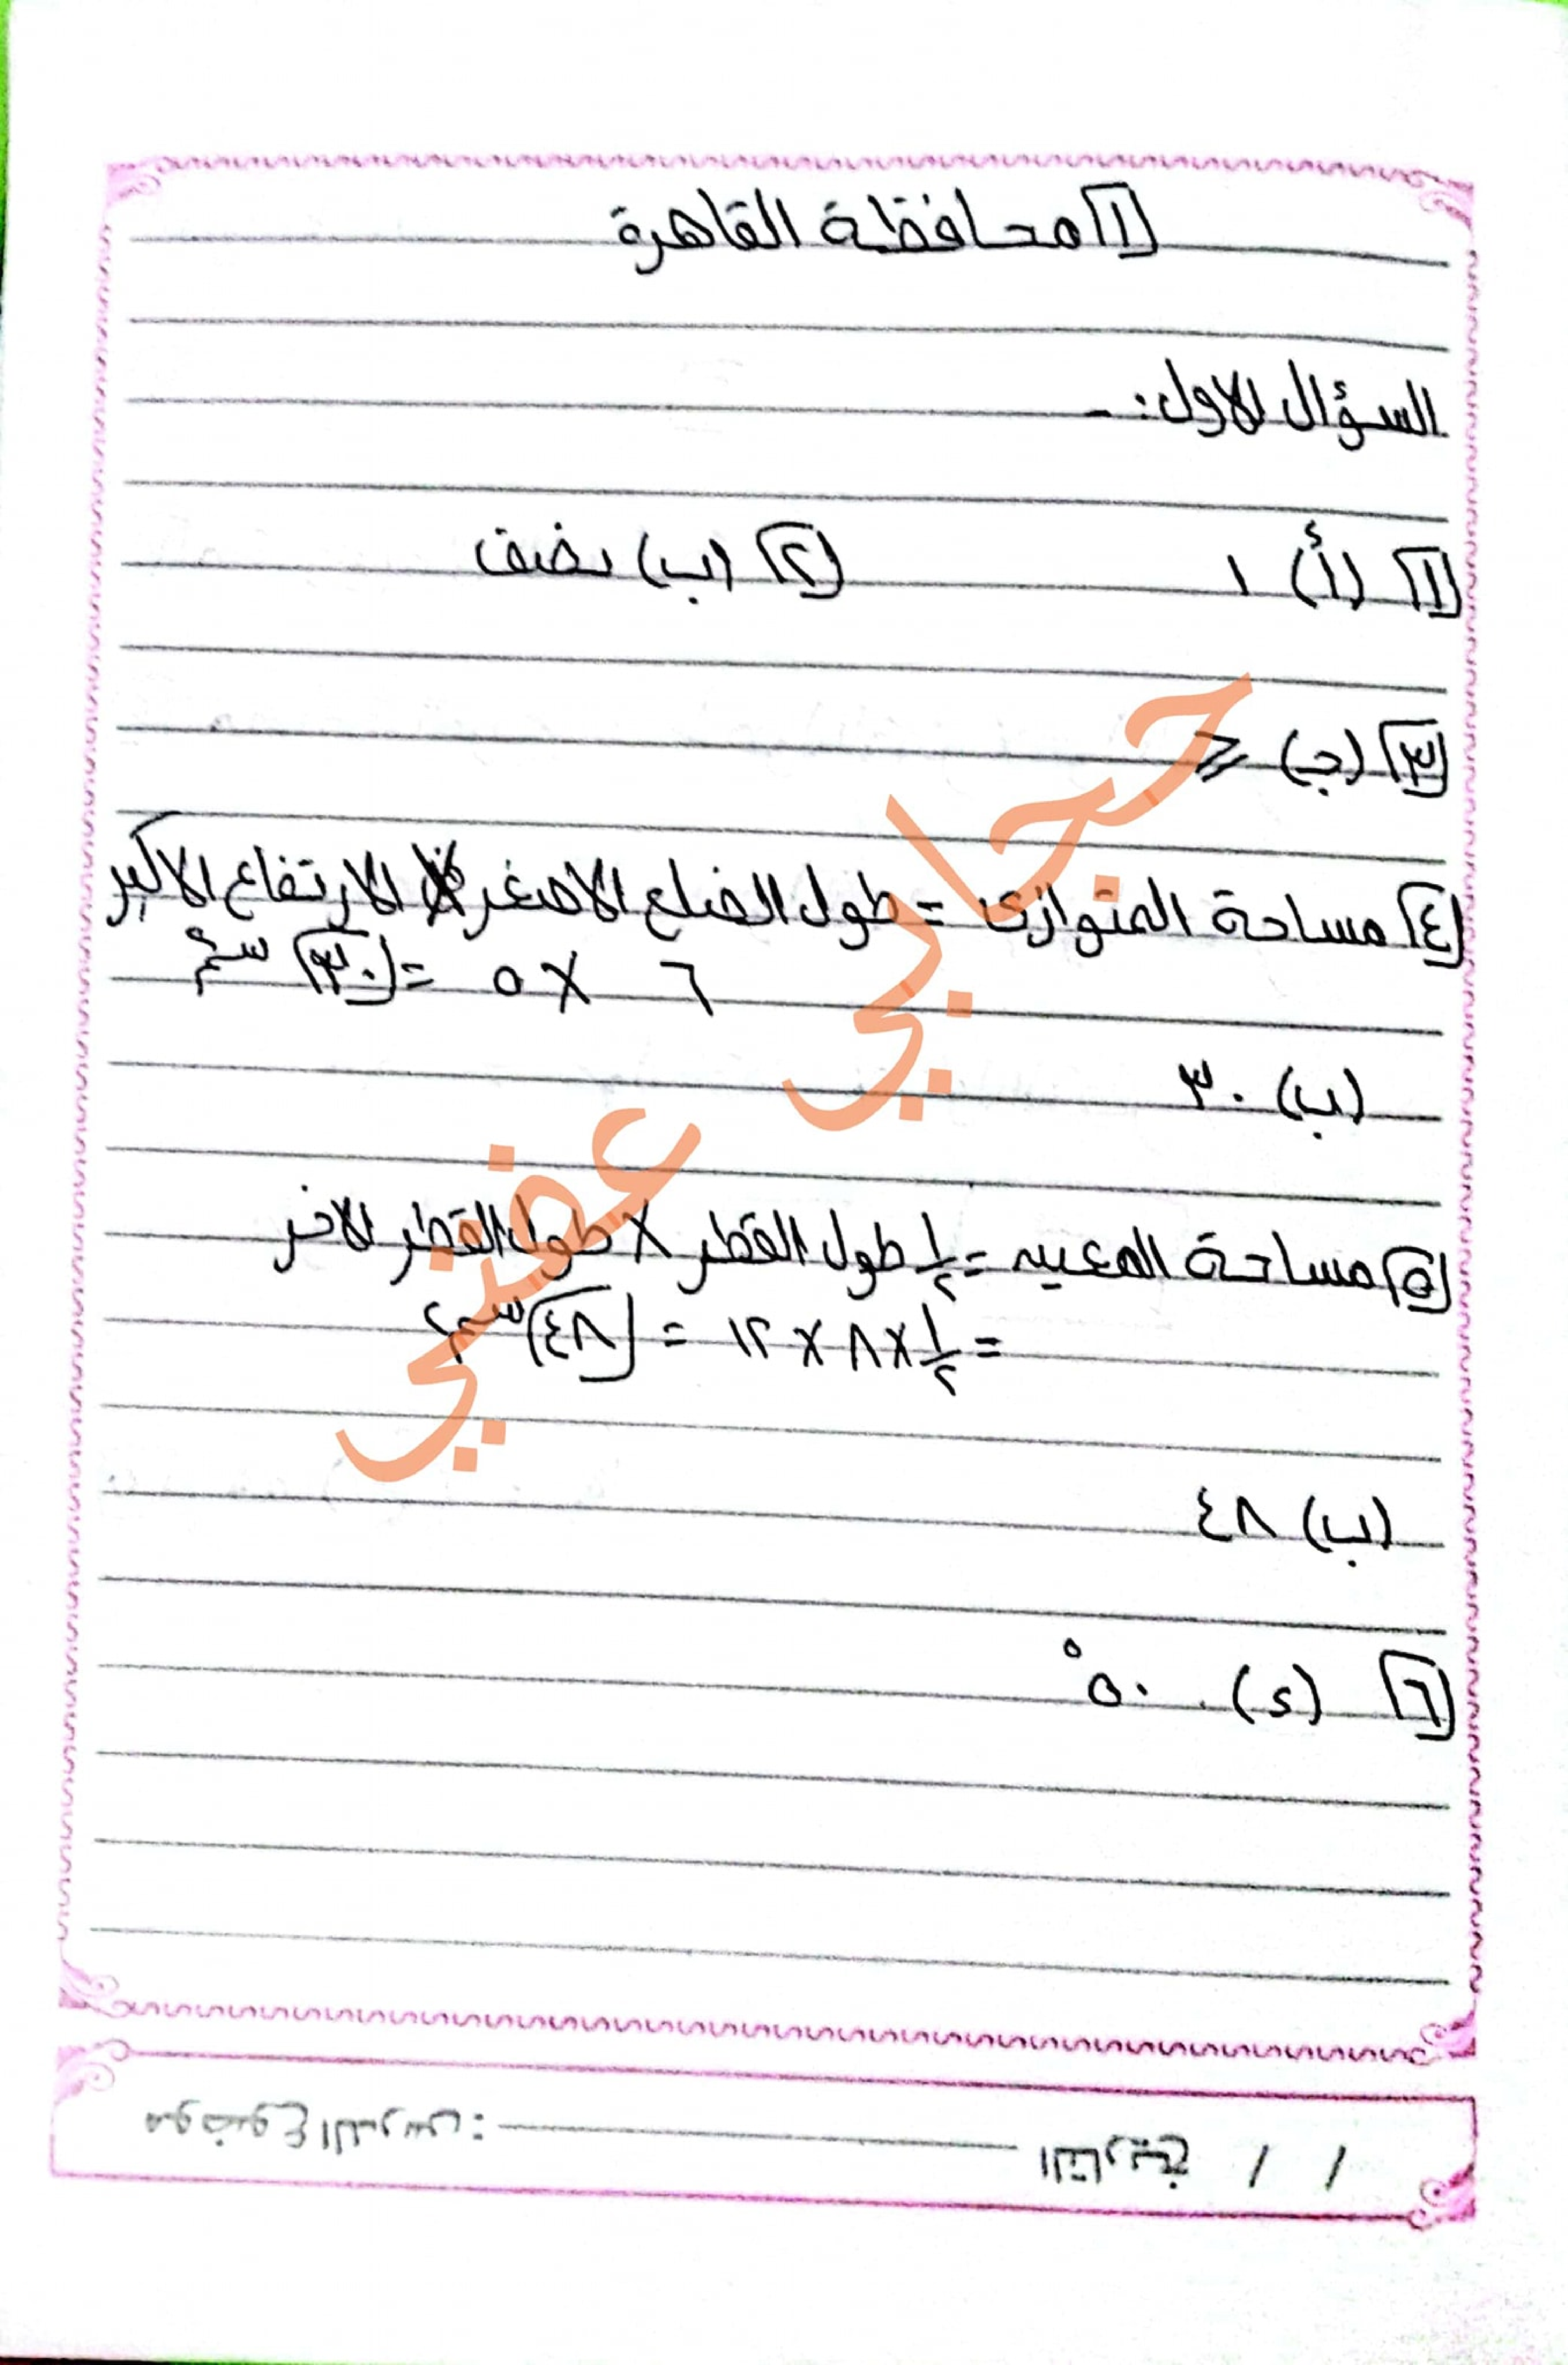 ١ محافظة القاهرة
السؤال الاول:-
١ (أ) ١ ٢ (ب) نصف
٣ (جـ) ⩾
٤ مساحة المتوازى = طول الضلع الاصغر × الارتفاع الاكبر
٦ × ٥ = ٣٠ سم٢
(ب) ٣٠
٥ مساحة المعين = ١/٢ طول القطر × طول القطر الاخر
= ١/٢ × ٨ × ١٢ = ٤٨ سم٢
(ب) ٤٨
٦ (د) ٥٠°
حجابي عفتي
التاريخ / /
موضوع الدرس: